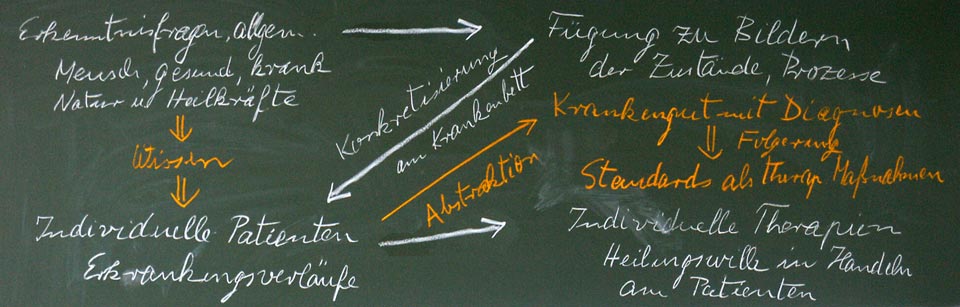 Erkenntnisfragen, allgem.
Mensch, gesund, krank
Natur u Heilkräfte
Wissen
Individuelle Patienten
Erkrankungsverläufe
Konkretisierung
am Krankenbett
Abstraktion
Fügung zu Bildern
der Zustände, Prozesse
Krankengut mit Diagnosen
Folgerung
Standards als Therap Maßnahmen
Individuelle Therapien
Heilungswille in Handeln
am Patienten